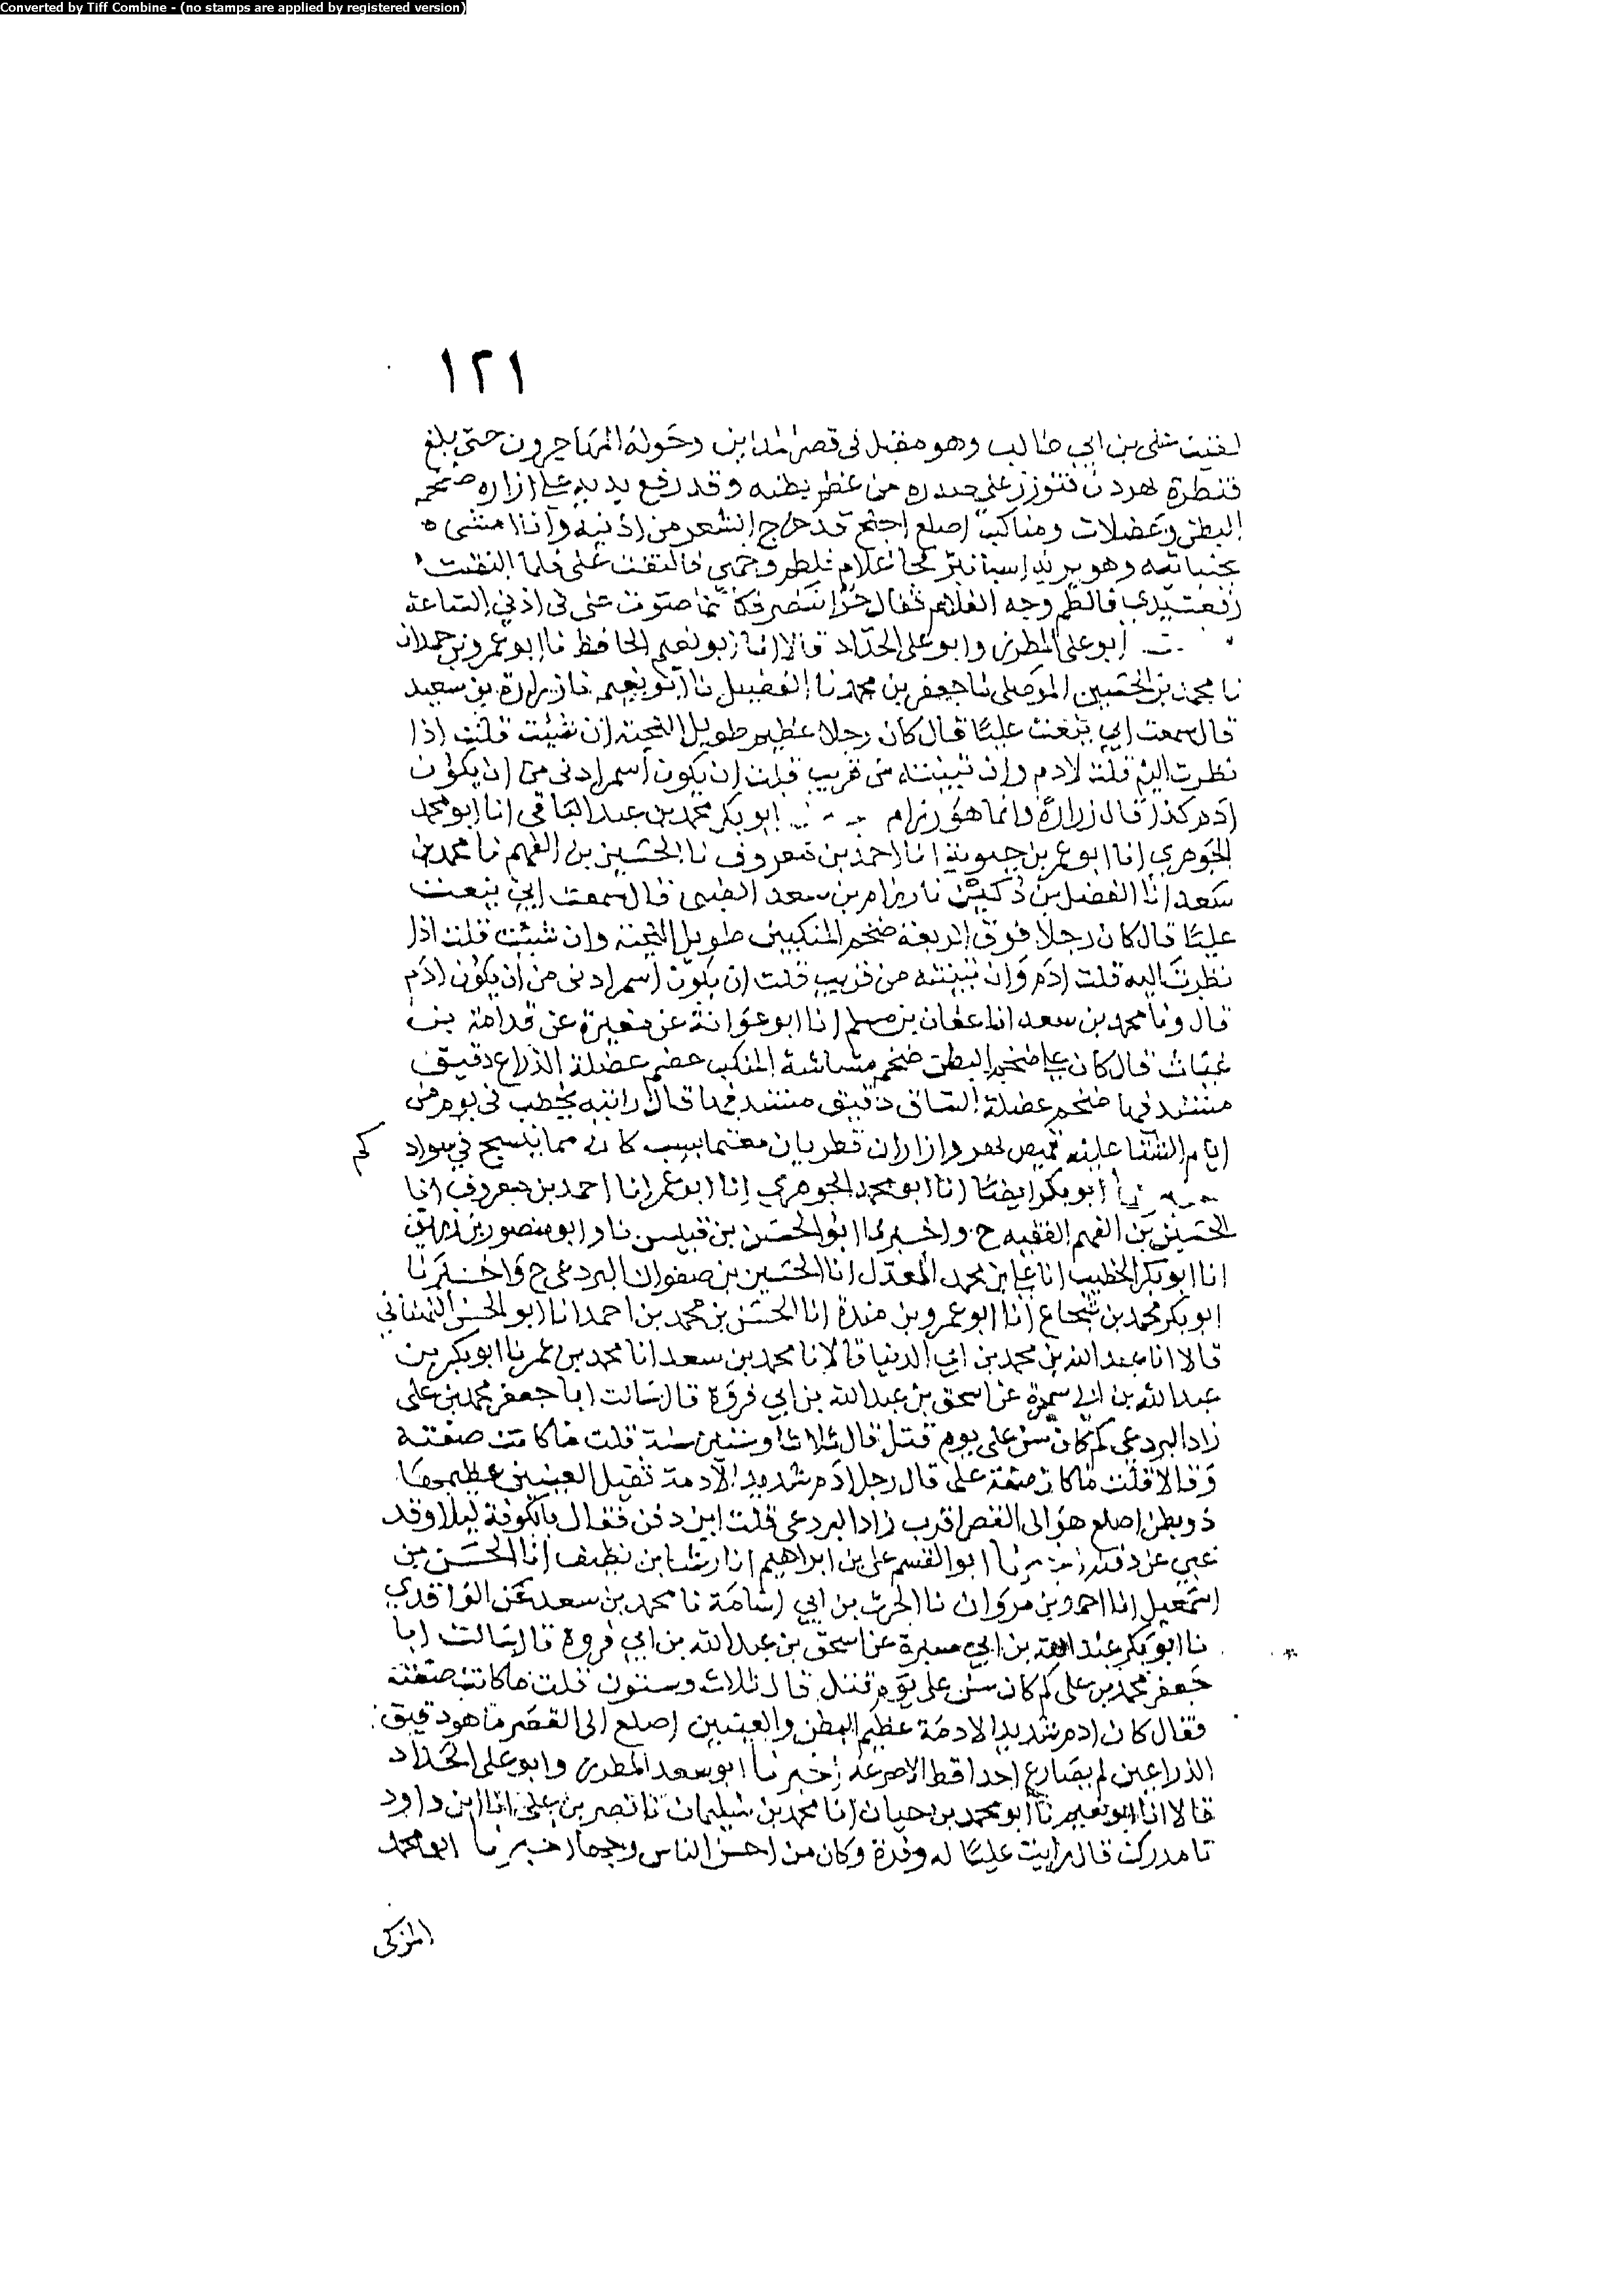 Converted by Tiff Combine - (no stamps are applied by registered version)
١٢١
لقيت علي بن ابي طالب وهو مقبل في قصر المداين وحوله المهاجرون حتى بلغ
قنطرة فتوزر على صدره من عظم بطنه وقد رفع يديه على ازاره ضخم
البطن وعضلات ومناكب اصلع اجلح قد خرج الشعر من اذنيه وانا امشي
بجنباته وهو يريد فجا غلام فلطم وجهي فالتفت علي فلما التفت
رفعت يدي فالطم وجه الغلام فقال حر انتصر فكانما صوت علي في اذني الساعة
ابو علي المطرز وابو علي الحداد قالا انا ابو نعيم الحافظ نا ابو عمرو بن حمدان
نا محمد بن الحسين الموصلي نا جعفر بن محمد نا الفضيل نا ابو نعيم نا زرارة بن سعيد
قال سمعت ابي ينعت عليا قال كان رجلا عظيم طويل اللحية ان شئت قلت اذا
نظرت اليه قلت لادم وان تبينته من قريب قلت ان يكون اسمر ادنى من ان يكون
ادم كذا قال زرارة وانما هو رزام ابو بكر محمد بن عبد الباقي انا ابو محمد
الجوهري انا ابو عمر بن حيوية انا احمد بن معروف نا الحسين بن الفهم نا محمد بن
سعد انا الفضل بن دكين نا رزام بن سعد الضبي قال سمعت ابي ينعت
عليا قال كان رجلا فوق الربعة ضخم المنكبين طويل اللحية وان شئت قلت اذا
نظرت اليه قلت ادم وان تبينته من قريب قلت ان يكون اسمر ادنى من ان يكون ادم
قال ونا محمد بن سعد انا عفان بن مسلم انا ابو عوانة عن مغيرة عن قدامة بن
عتاب قال كان علي ضخم البطن ضخم مشاشة المنكب ضخم عضلة الذراع دقيق
مستدقها ضخم عضلة الساق دقيق مستدقها قال رايته يخطب في يوم من
ايام الشتا عليه قميص وازاران قطريان معتما كان مما ينسج في سواد كم
ابو بكر ايضا انا ابو محمد الجوهري انا ابو عمر انا احمد بن معروف انا
الحسين بن الفهم الفقيه ح واخبرنا ابو الحسن بن قبيس نا وابو منصور بن زريق
انا ابو بكر الخطيب انا علي بن محمد المعدل انا الحسين بن صفوان البردعي ح واخبرنا
ابو بكر محمد بن شجاع انا ابو عمرو بن مندة انا الحسن بن محمد بن احمد انا ابو الحسن اللنباني
قالا انا عبد الله بن محمد بن ابي الدنيا قالا نا محمد بن سعد انا محمد بن عمر نا ابو بكر بن
عبد الله بن ابي سبرة عن اسحق بن عبد الله بن ابي فروة قال سالت ابا جعفر محمد بن علي
زاد البردعي كم كان سن علي يوم قتل قال ثلاثا وستين سنة قلت ما كانت صفته
وقالا قلت ما كان صفة علي قال رجل ادم شديد الادمة ثقيل العينين عظيمهما
ذو بطن اصلع هو الى القصر اقرب زاد البردعي قلت اين دفن فقال بالكوفة ليلا وقد
غبي عن دفنه اخبرنا ابو القسم علي بن ابراهيم انا رشا بن نظيف انا الحسن بن
اسمعيل انا احمد بن مروان نا الحرث بن ابي اسامة نا محمد بن سعد عن الواقدي
نا ابو بكر عبد الله بن ابي سبرة عن اسحق بن عبد الله بن ابي فروة قال سالت ابا
جعفر محمد بن علي كم كان سن علي يوم قتل قال ثلاث وستون قلت ما كانت صفته
فقال كان ادم شديد الادمة عظيم البطن والعينين اصلع الى القصر ما هو دقيق
الذراعين لم يصارع احدا قط الا صرعه اخبرنا ابو سعد المطرز وابو علي الحداد
قالا انا ابو نعيم نا ابو محمد بن حيان انا محمد بن سليمان نا نصر بن علي انا ابن داود
نا مدرك قال رايت عليا له وفرة وكان من احسن الناس وجها اخبرنا ابو محمد
المزكى